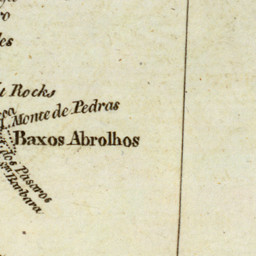 Rocks
Monte de Pedras
Baxos Abrolhos
dos Pasaros
Barbara